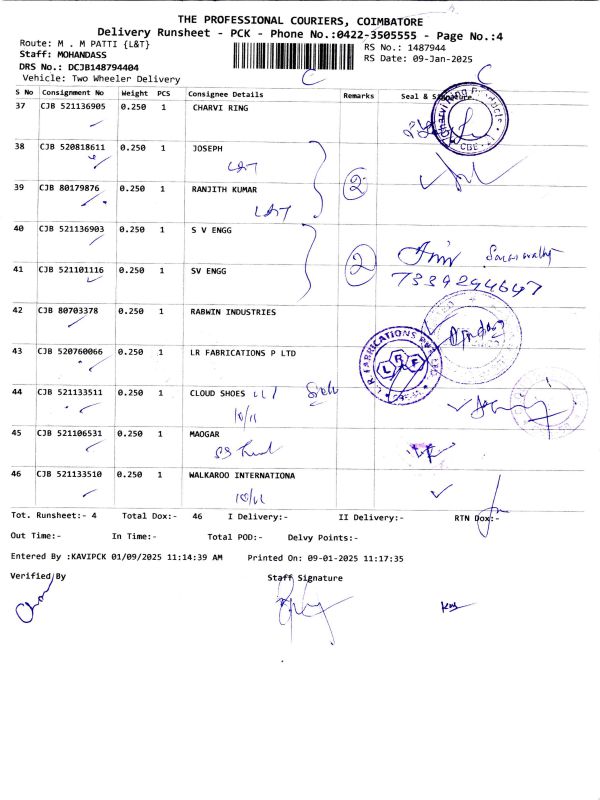 THE PROFESSIONAL COURIERS, COIMBATORE
Delivery Runsheet - PCK - Phone No.:0422-3505555 - Page No.:4
Route: M . M PATTI {L&T} RS No.: 1487944
Staff: MOHANDASS RS Date: 09-Jan-2025
DRS No.: DCJB148794404
Vehicle: Two Wheeler Delivery
S No Consignment No Weight PCS Consignee Details Remarks Seal & Signature
37 CJB 521136905 0.250 1 CHARVI RING
CBE
38 CJB 520818611 0.250 1 JOSEPH
L&T
2
39 CJB 80179876 0.250 1 RANJITH KUMAR
L&T
40 CJB 521136903 0.250 1 S V ENGG
2
41 CJB 521101116 0.250 1 SV ENGG
7339294647
42 CJB 80703378 0.250 1 RABWIN INDUSTRIES
43 CJB 520760066 0.250 1 LR FABRICATIONS P LTD
L R F
44 CJB 521133511 0.250 1 CLOUD SHOES
45 CJB 521106531 0.250 1 MAOGAR
46 CJB 521133510 0.250 1 WALKAROO INTERNATIONA
Tot. Runsheet:- 4 Total Dox:- 46 I Delivery:- II Delivery:- RTN Dox:-
Out Time:- In Time:- Total POD:- Delvy Points:-
Entered By :KAVIPCK 01/09/2025 11:14:39 AM Printed On: 09-01-2025 11:17:35
Verified By Staff Signature